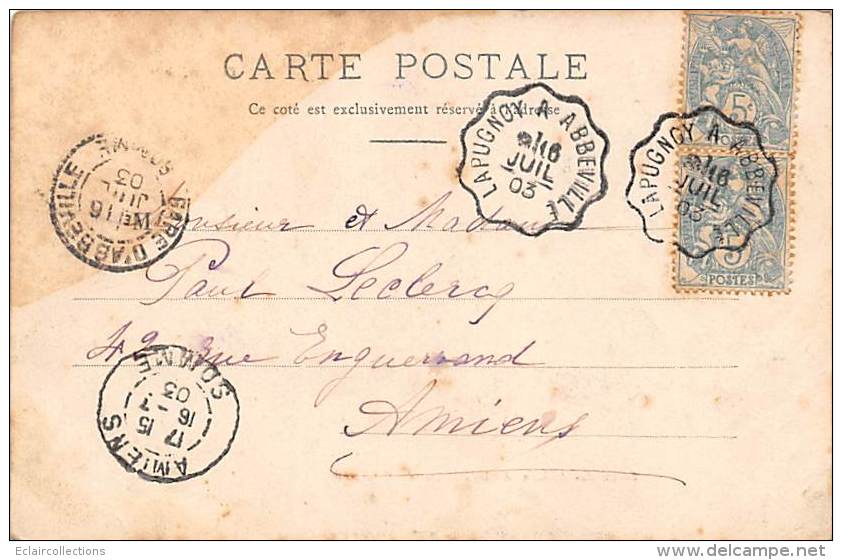 CARTE POSTALE
Ce côté est exclusivement réservé à l'adresse
LAPUGNOY A ABBEVILLE
16
JUIL
03
LAPUGNOY A ABBEVILLE
16
JUIL
03
5c
5
POSTES
GARE D'ABBEVILLE SOMME
16
JUIL
03
Monsieur et Madame
Paul Leclercq
42 rue Enguerrand
Amiens
AMIENS SOMME
17 15
16 - 7
03
Eclaircollections
delcampe.net